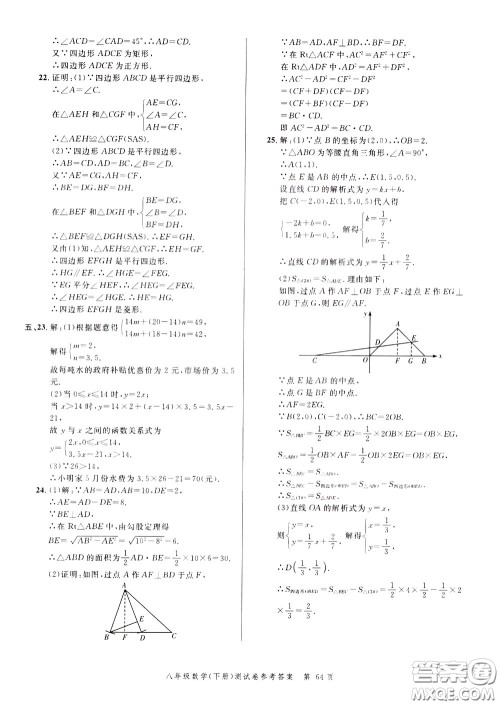 ∴∠ACD=∠CAD=45°,∴AD=CD.
又∵四边形 ADCE 为矩形,
∴四边形 ADCE 为正方形.
22. 证明:(1)∵四边形 ABCD 是平行四边形,
∴∠A=∠C.
在△AEH 和△CGF 中, { AE=CG, ∠A=∠C, AH=CF,
∴△AEH≌△CGF(SAS).
(2)∵四边形 ABCD 是平行四边形,
∴AD=BC,AB=CD,∠B=∠D.
∵AE=CG,AH=CF,
∴BE=DG,BF=DH.
在△BEF 和△DGH 中, { BE=DG, ∠B=∠D, BF=DH,
∴△BEF≌△DGH(SAS).∴EF=GH.
又由(1)知,△AEH≌△CGF,∴EH=GF.
∴四边形 EFGH 是平行四边形.
∴HG∥EF.∴∠HGE=∠FEG.
∵EG平分∠HEF,∴∠HEG=∠FEG.
∴∠HEG=∠HGE.∴HE=HG.
∴四边形 EFGH 是菱形.
五、23. 解:(1)根据题意得 { 14m+(20−14)n=49, 14m+(18−14)n=42,
解得 { m=2, n=3.5.
故每吨水的政府补贴优惠价为 2 元,市场价为 3.5
元.
(2)当 0≤x≤14 时,y=2x;
当 x>14 时,y=14×2+(x−14)×3.5=3.5x−
21.
故 y 与 x 之间的函数关系式为
y= { 2x,0≤x≤14, 3.5x−21,x>14.
(3)∵26>14,
∴小明家 5 月份水费为 3.5×26−21=70(元).
24. (1)解:∵AB=AD,AB=10,DE=2,
∴AE=AD−DE=8.
∵BE⊥AD,
∴在 Rt△ABE 中,由勾股定理得
BE=√(AB²−AE²)=√(10²−8²)=6.
∴△ABD 的面积为 1/2 AD·BE=1/2×10×6=30.
(2)证明:如图,过点 A 作 AF⊥BD 于点 F.
A
E
B F D C
∵AB=AD,AF⊥BD,∴BF=DF.
在 Rt△AFC 中,AC²=AF²+CF²,
在 Rt△ADF 中,AD²=AF²+DF²,
∴AC²−AD²=CF²−DF²
=(CF+DF)(CF−DF)
=(CF+BF)(CF−DF)
=BC·CD.
即 AC²−AD²=BC·CD.
25. 解:(1)∵点 B 的坐标为(2,0),∴OB=2.
∵△ABO 为等腰直角三角形,∠A=90°,
∴A(1,1).
∵点 E 是 AB 的中点,∴E(1.5,0.5).
设直线 CD 的解析式为 y=kx+b.
把 C(−2,0),E(1.5,0.5)代入得
{ −2k+b=0, 1.5k+b=0.5, 解得 { k=1/7, b=2/7.
∴直线 CD 的解析式为 y=1/7x+2/7.
如图,过点 A 作 AF⊥OB 于点 F,过点 E 作 EG⊥OB
于点 G,则 EG∥AF.
y
A
E
C O F G B x
∵点 E 是 AB 的中点,
∴AF=2EG.
∵B(2,0),C(−2,0),∴BC=2OB.
(3)∵直线 OA 的解析式为 y=x,
则 { y=x, y=1/7x+2/7, 解得 { x=1/3, y=1/3.
∴D(1/3,1/3).
八年级数学(下册)测试卷参考答案 第 64 页